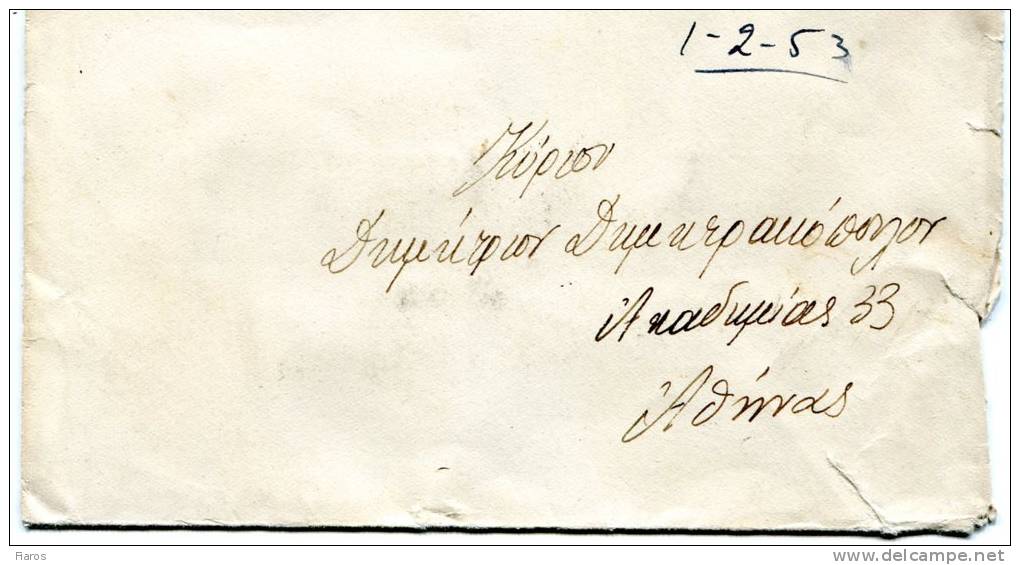 1-2-53
Κύριον
Δημήτριον Δημητρακόπουλον
Ἀκαδημίας 33
Ἀθήνας
Raros
www.delcampe.net